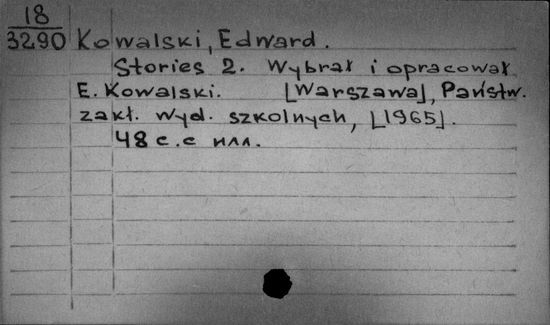 18
3290 Kowalski, Edward.
Stories 2. Wybrał i opracował
E. Kowalski. [Warszawa], Państw.
zakł. wyd. szkolnych, [1965].
48 с. с илл.